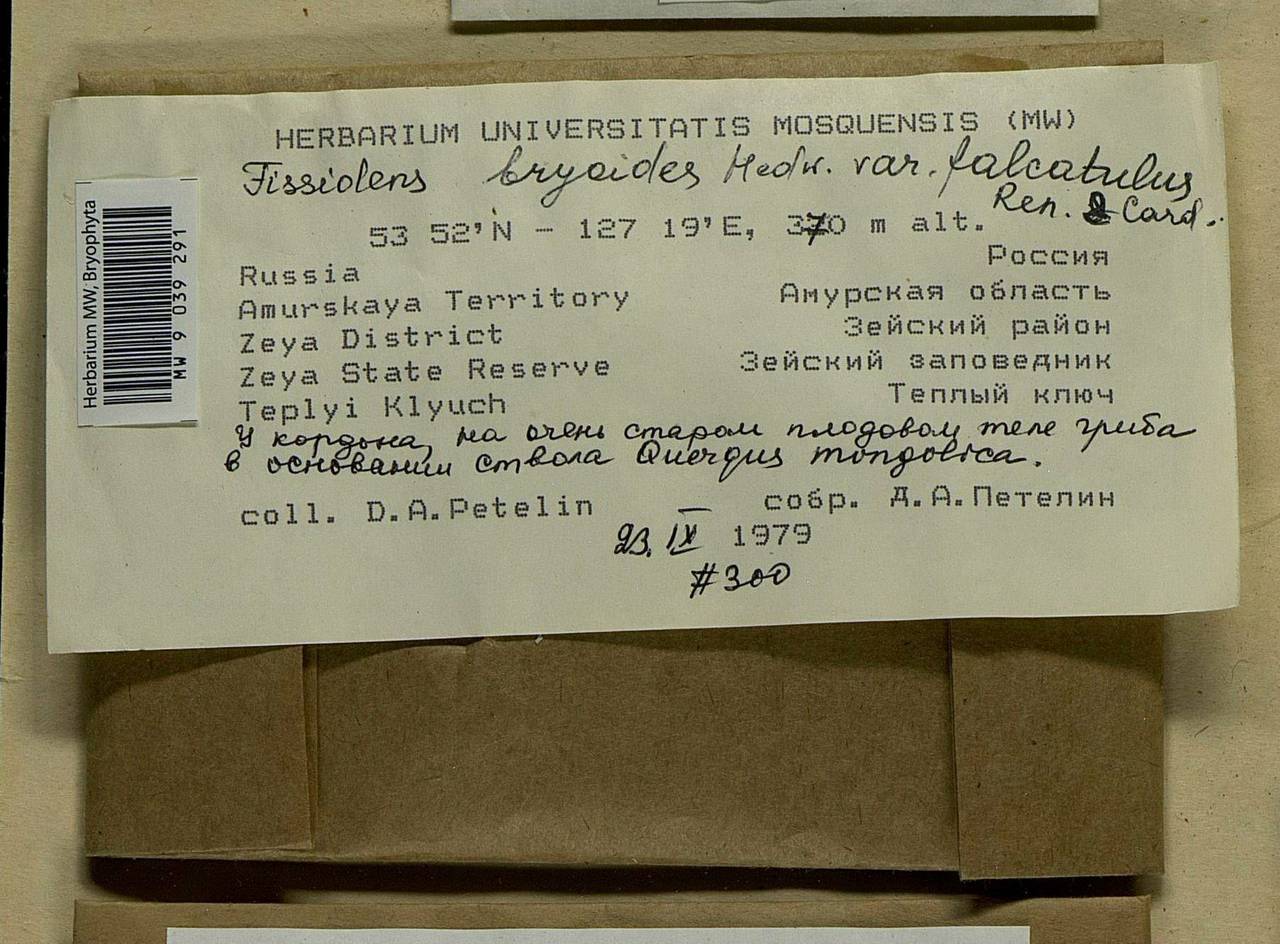 HERBARIUM UNIVERSITATIS MOSQUENSIS (MW)
Fissidens bryoides Hedw. var. falcatulus
Ren. & Card.
53 52'N - 127 19'E, 370 m alt.
Russia
Россия
Amurskaya Territory
Амурская область
Zeya District
Зейский район
Zeya State Reserve
Зейский заповедник
Teplyi Klyuch
Теплый ключ
У кордона, на очень старом плодовом теле гриба
в основании ствола Quergus mongolica.
coll. D.A.Petelin — собр. Д.А.Петелин
23. IX 1979
#300
Herbarium MW, Bryophyta
MW 9 039 291